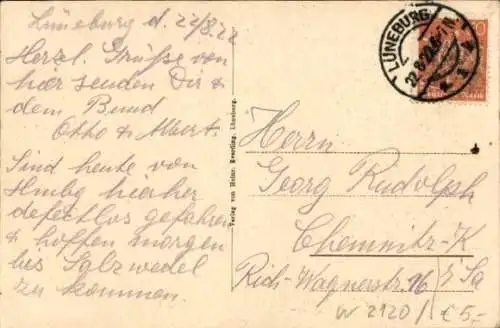 Lüneburg d. 22/8.22
Herzl. Grüsse von
hier senden Dir &
dem Bund
Otto & Albert.
Sind heute von
Hmbg hierher
defectlos gefahren
& hoffen morgen
bis Salzwedel
zu kommen.
Verlag von Heinr. Everding, Lüneburg.
LÜNEBURG
22.8.22.6-7N.
Herrn
Georg Rudolph
Chemnitz-K
Rich-Wagnerstr. 16 i/Sa
W 2120/€5,-